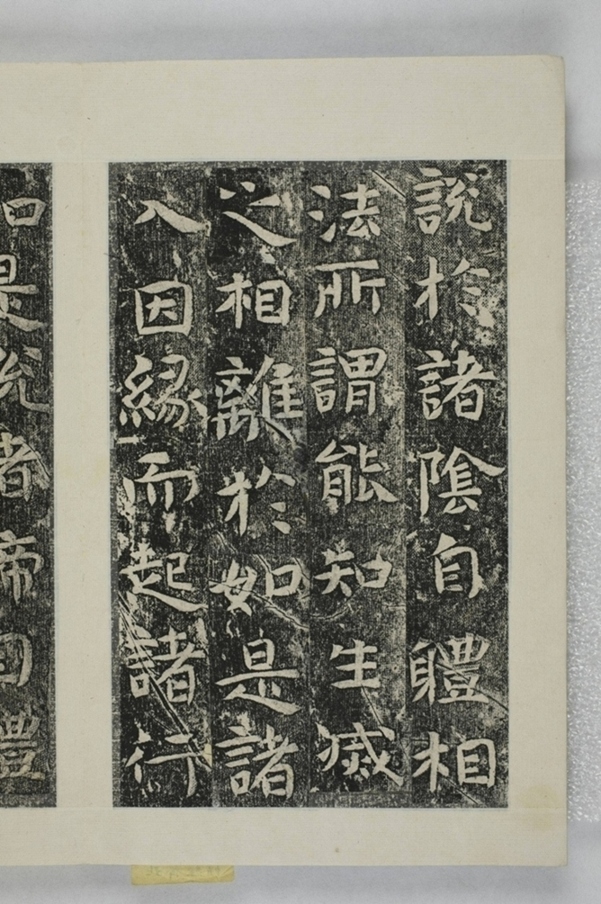 說於諸陰自軆相
法所謂能知生滅
之相離於如是諸
入因緣而起諸行
是自